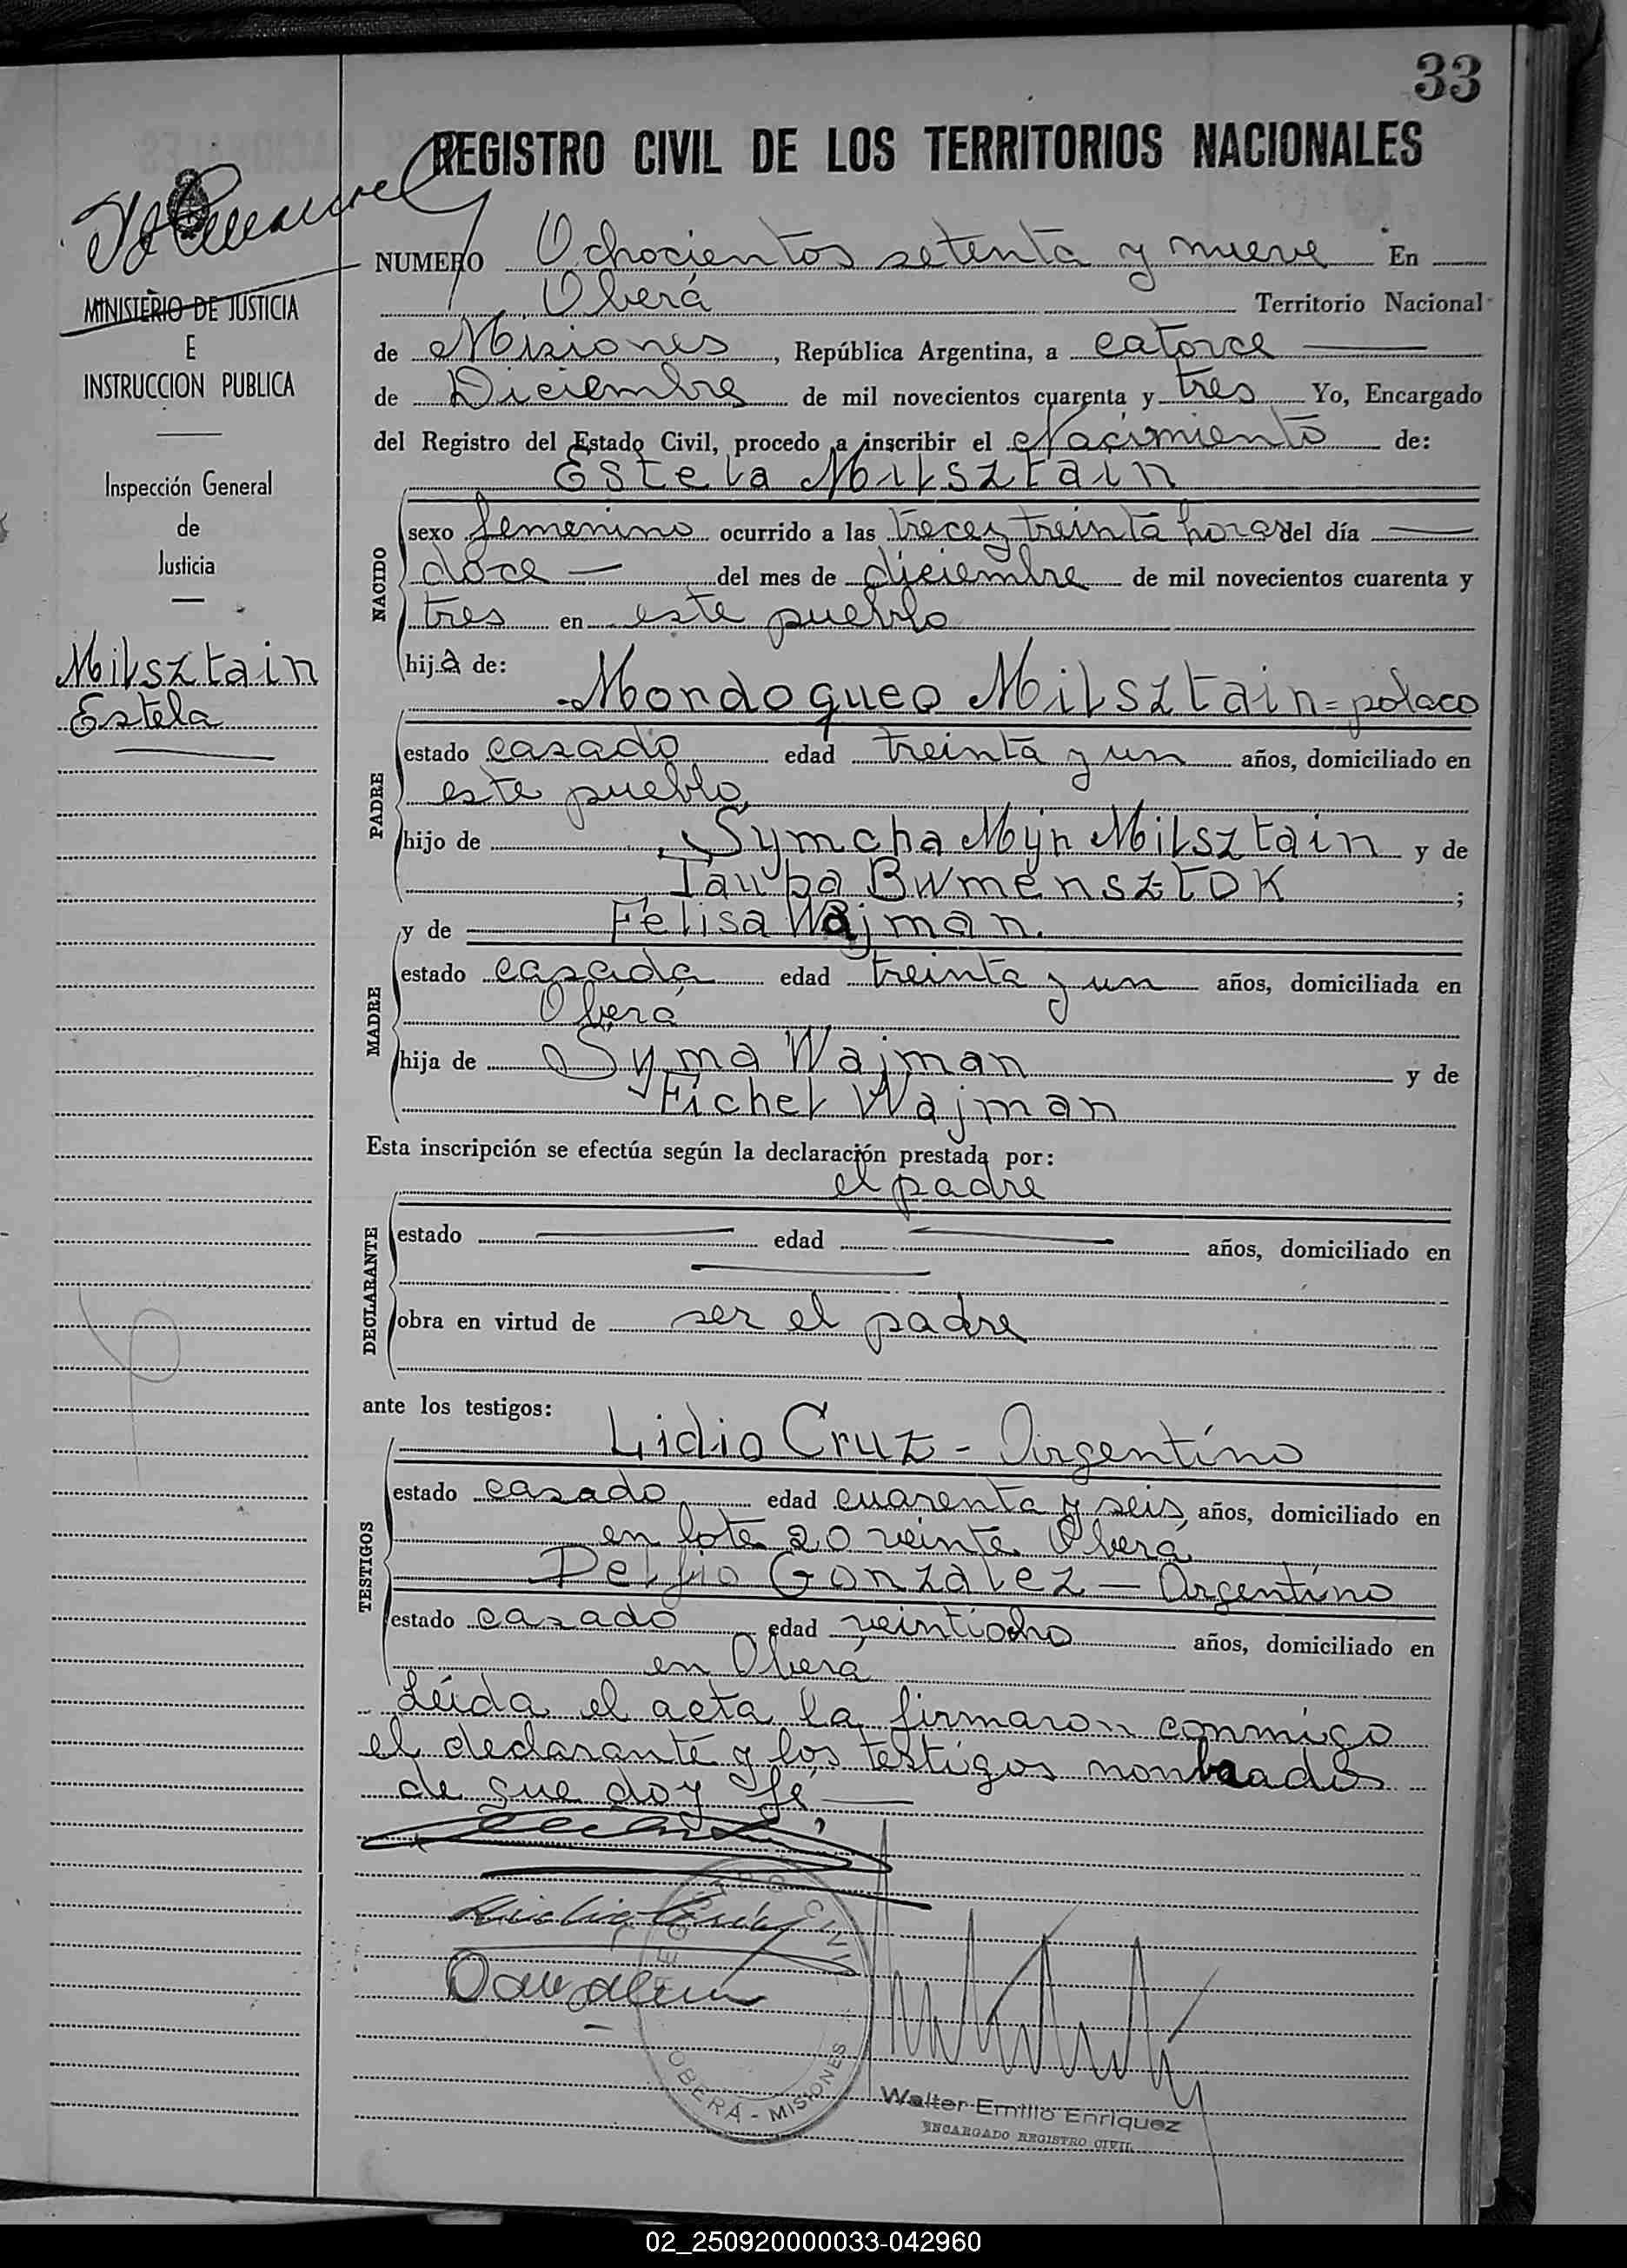 33
REGISTRO CIVIL DE LOS TERRITORIOS NACIONALES
MINISTERIO DE JUSTICIA
E
INSTRUCCION PUBLICA
Inspección General
de
Justicia
Milsztain
Estela
NUMERO Ochocientos setenta y nueve En
Oberá Territorio Nacional
de Misiones, República Argentina, a catorce
de Diciembre de mil novecientos cuarenta y tres Yo, Encargado
del Registro del Estado Civil, procedo a inscribir el Nacimiento de:
Estela Milsztain
NACIDO
sexo femenino ocurrido a las trece y treinta horas del día
doce del mes de diciembre de mil novecientos cuarenta y
tres en este pueblo
hija de:
Mondoqueo Milsztain = polaco
PADRE
estado casado edad treinta y un años, domiciliado en
este pueblo
hijo de Symcha Myn Milsztain y de
Tauba Bwmensztok ;
y de Felisa Wajman.
MADRE
estado casada edad treinta y un años, domiciliada en
Oberá
hija de Syma Wajman y de
Fichel Wajman
Esta inscripción se efectúa según la declaración prestada por:
el padre
DECLARANTE
estado edad años, domiciliado en
obra en virtud de ser el padre
ante los testigos:
Lidio Cruz - Argentino
TESTIGOS
estado casado edad cuarenta y seis años, domiciliado en
en lote 20 veinte Oberá
Delfio Gonzalez - Argentino
estado casado edad veintiocho años, domiciliado en
en Oberá
Leída el acta la firmaron conmigo
el declarante y los testigos nonbrados
de que doy fé
Lidio Cruz
REGISTRO CIVIL
OBERÁ - MISIONES
Walter Emilio Enriquez
ENCARGADO REGISTRO CIVIL
02_250920000033-042960